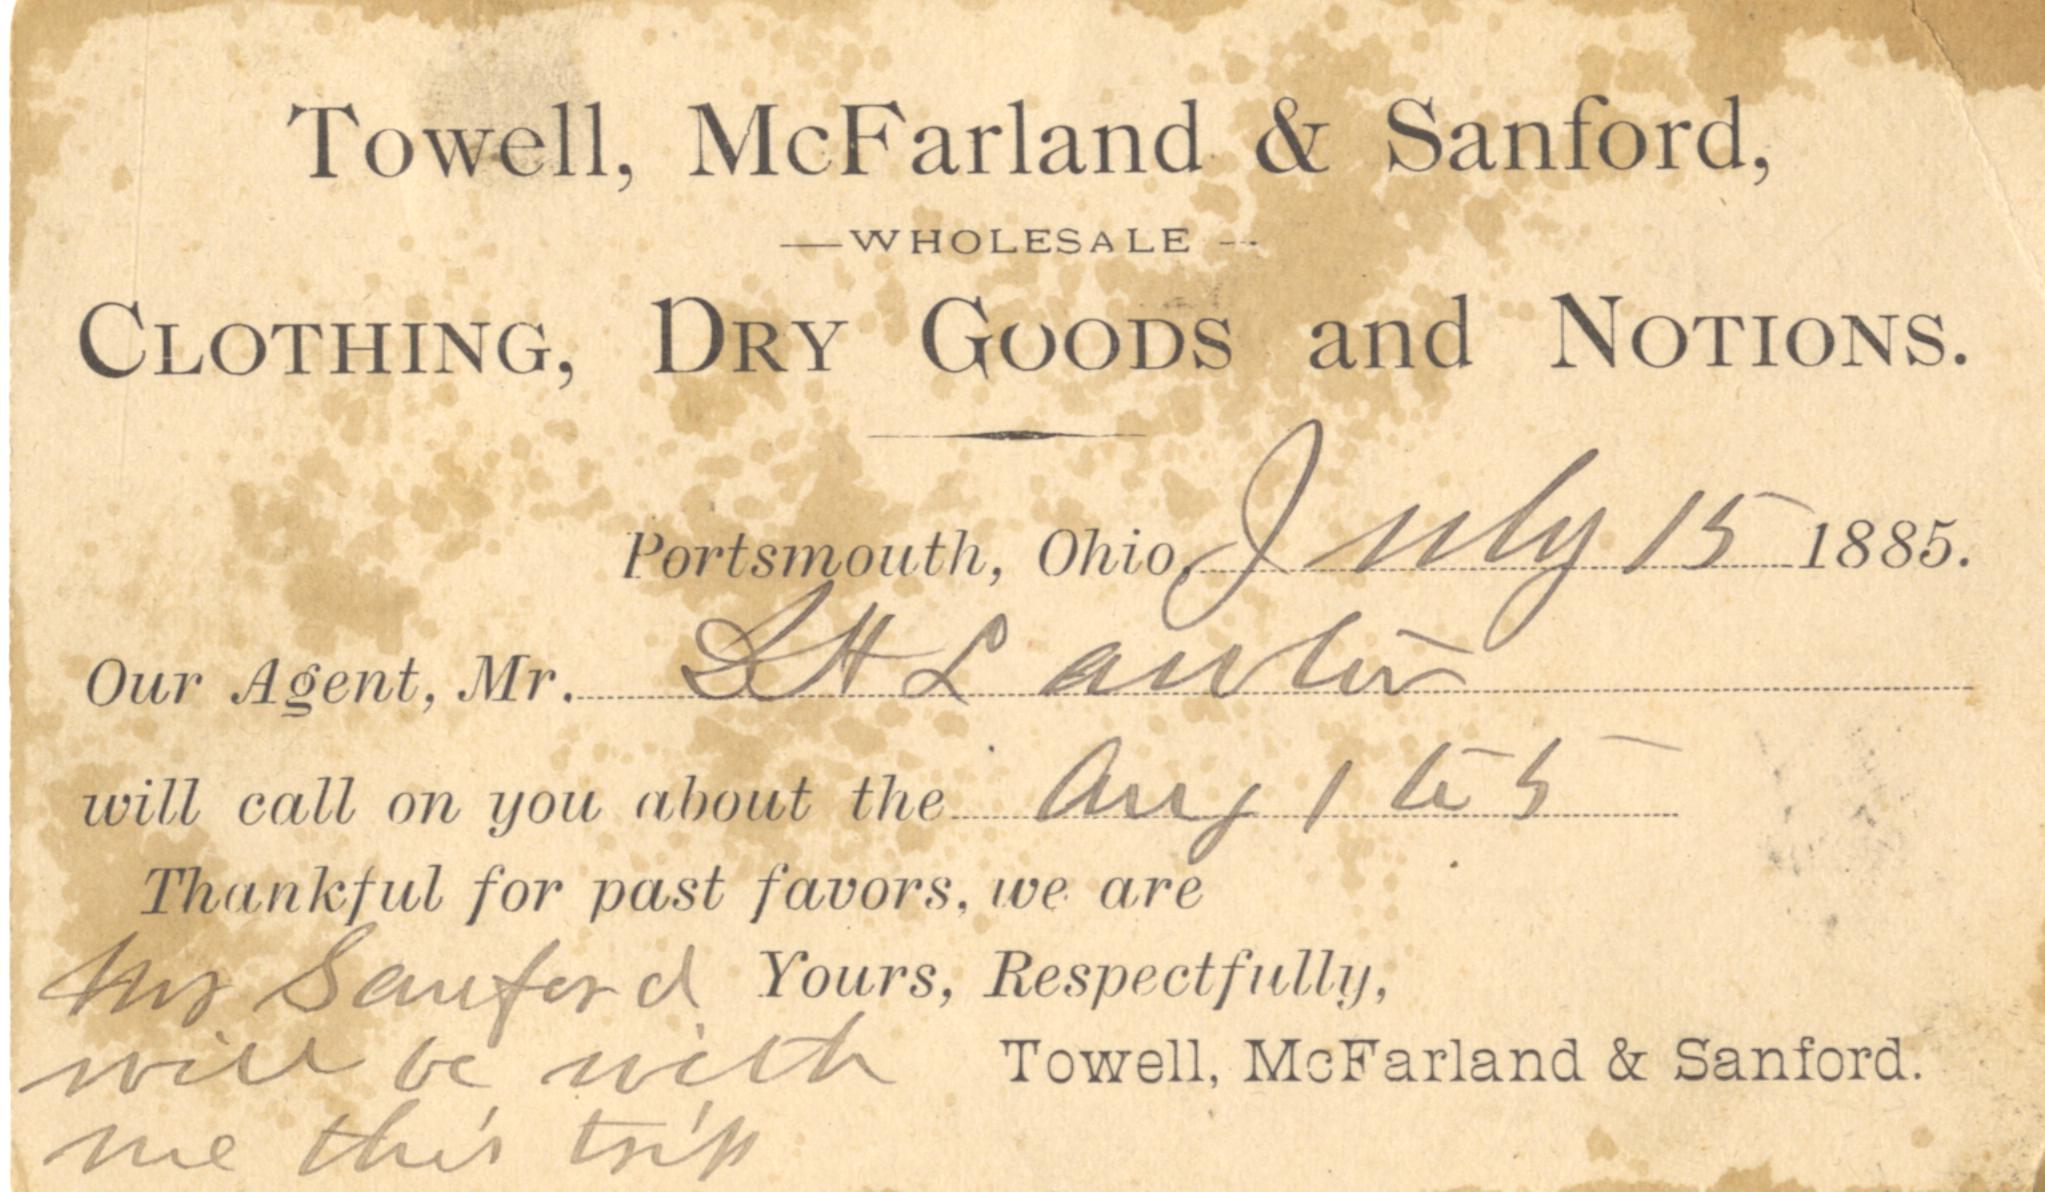 Towell, McFarland & Sanford,
—WHOLESALE—
CLOTHING, DRY GOODS and NOTIONS.
Portsmouth, Ohio, July 15 1885.
Our Agent, Mr.
will call on you about the Aug 1 to 5
Thankful for past favors, we are
Mr Sanford Yours, Respectfully,
will be with Towell, McFarland & Sanford.
me this trip